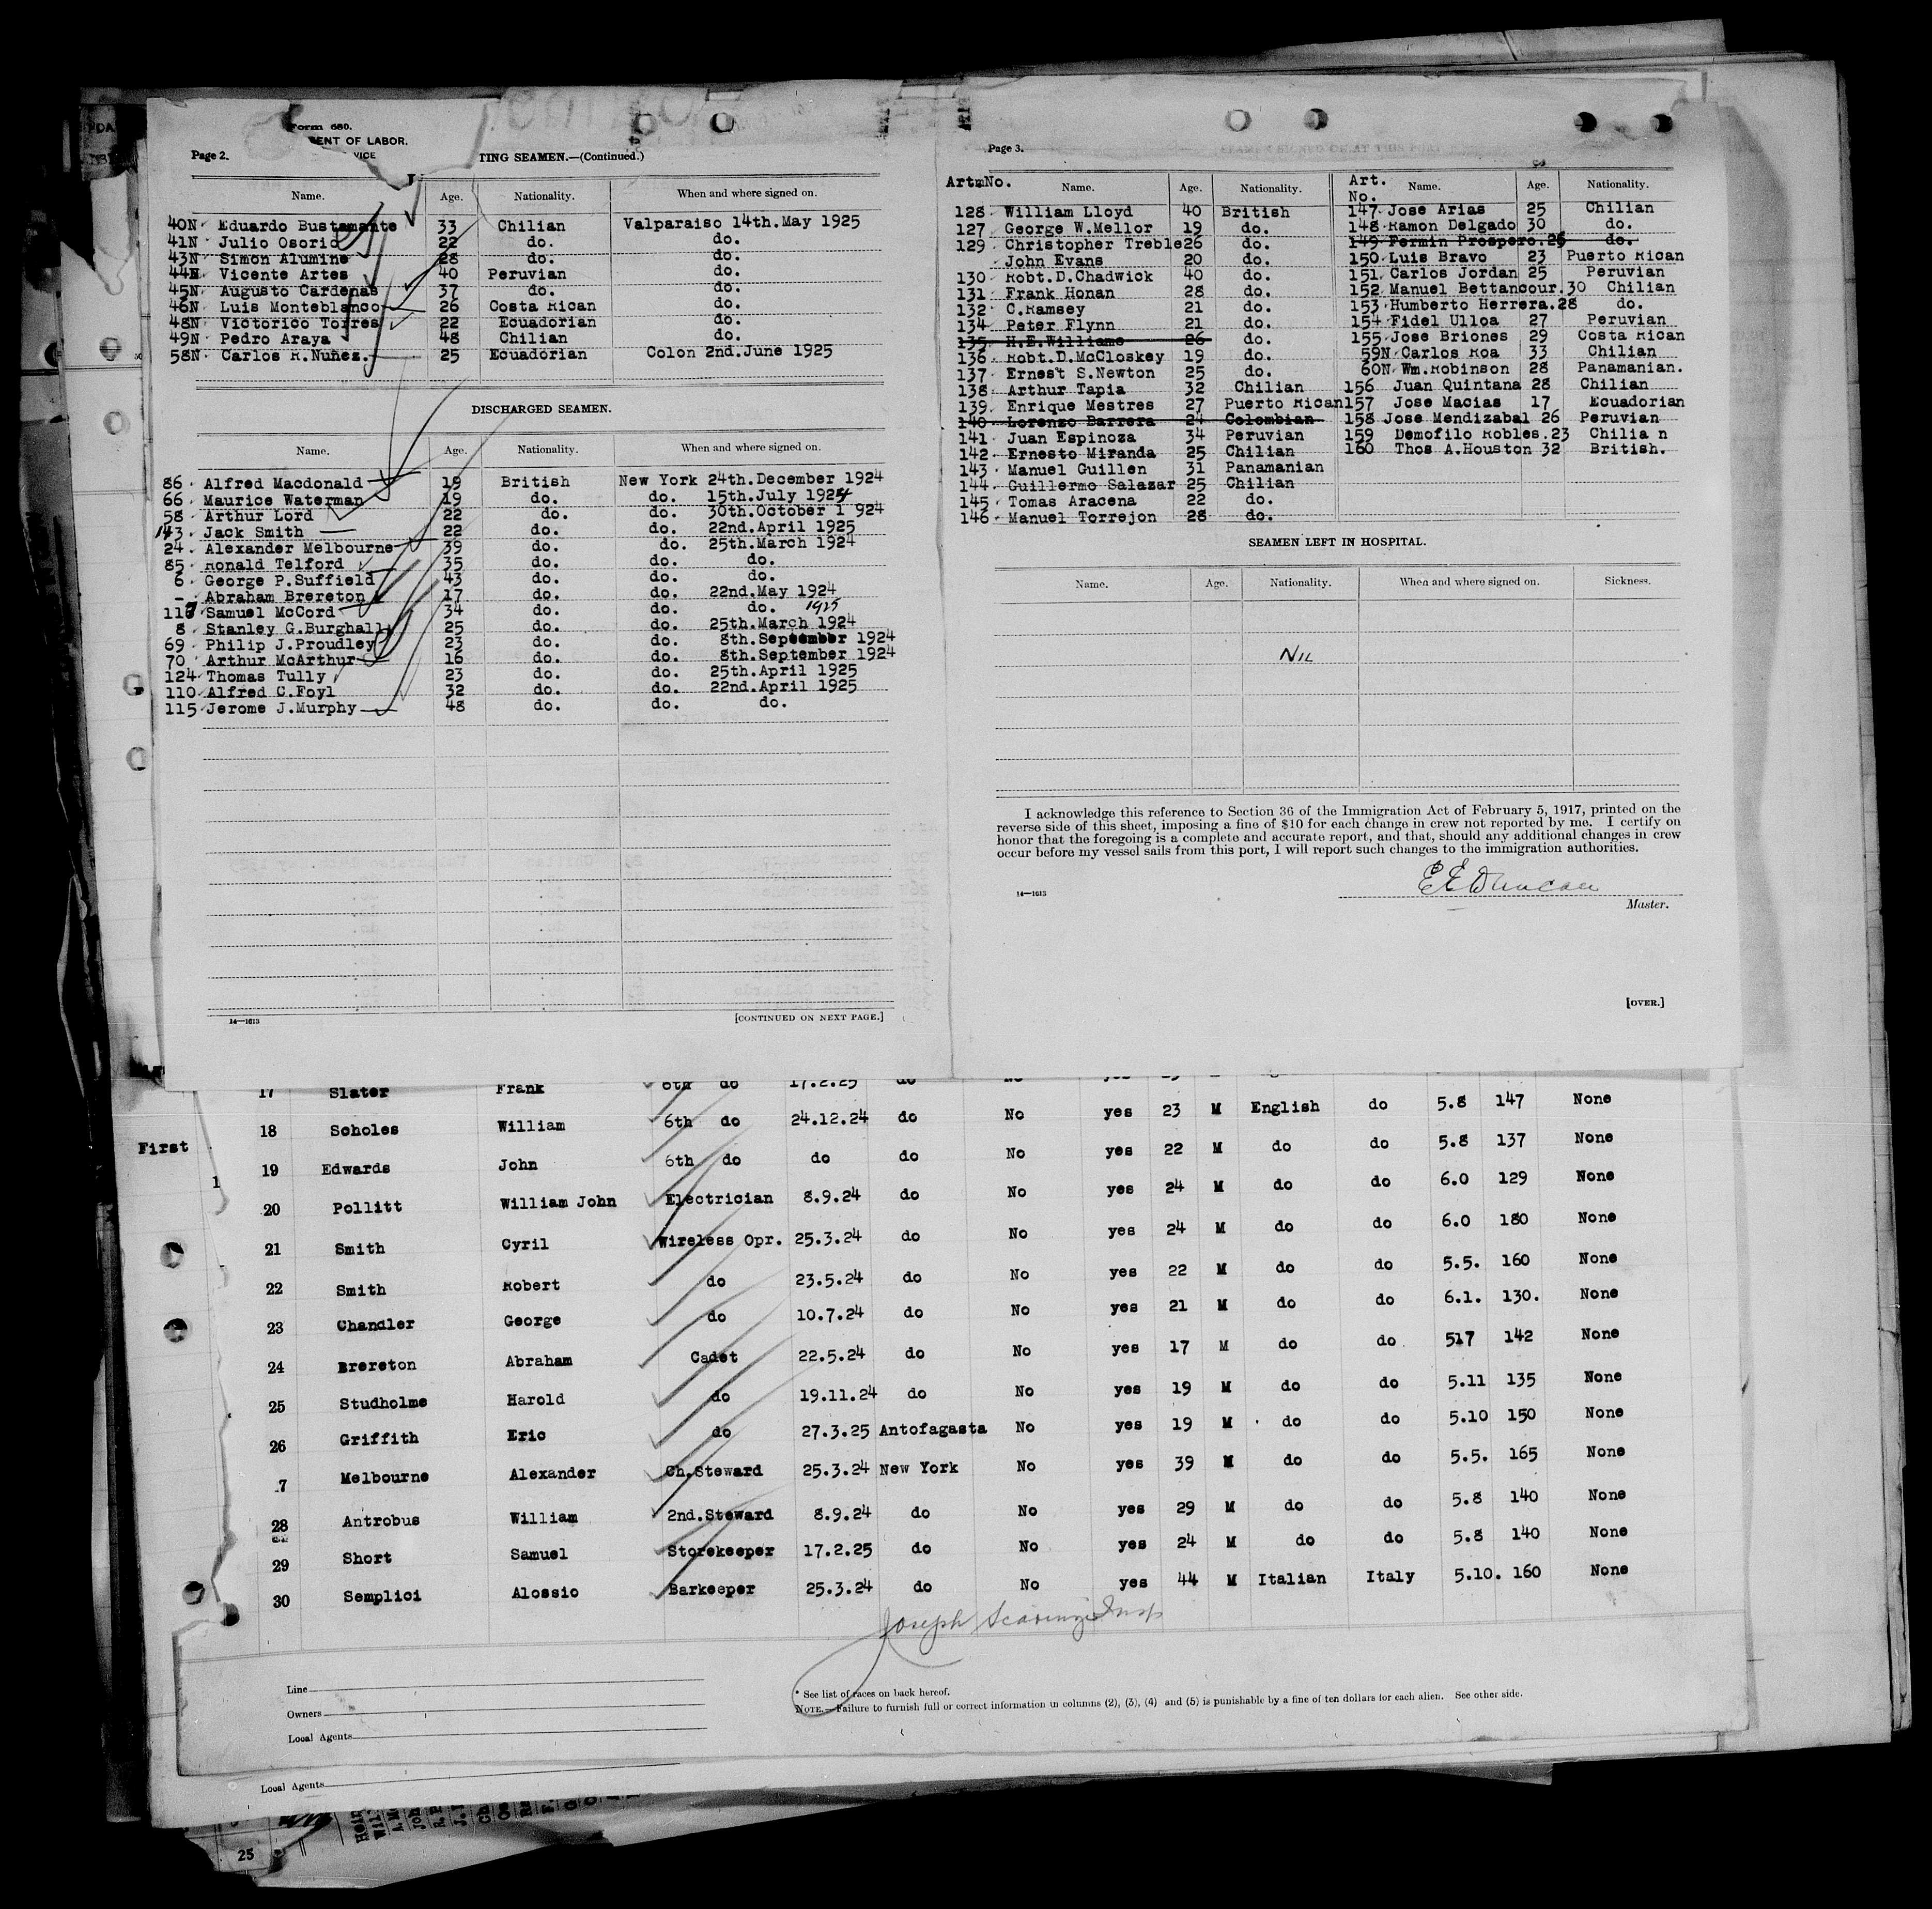 Form 680.
ENT OF LABOR.
VICE
Page 2.
TING SEAMEN.—(Continued.)
Name. Age. Nationality. When and where signed on.
40N Eduardo Bustamante 33 Chilian Valparaiso 14th.May 1925
41N Julio Osorio 22 do. do.
43N Simon Alumine 28 do. do.
44N Vicente Artes 40 Peruvian do.
45N Augusto Cardenas 37 do. do.
46N Luis Monteblanco 26 Costa Rican do.
48N Victorico Torres 22 Ecuadorian do.
49N Pedro Araya 48 Chilian do.
58N Carlos R.Nunez. 25 Ecuadorian Colon 2nd.June 1925
DISCHARGED SEAMEN.
Name. Age. Nationality. When and where signed on.
86 Alfred Macdonald 19 British New York 24th.December 1924
66 Maurice Waterman 19 do. do. 15th.July 1924
58 Arthur Lord 22 do. do. 30th.October 1 924
143 Jack Smith 22 do. do. 22nd.April 1925
24 Alexander Melbourne 39 do. do. 25th.March 1924
85 Ronald Telford 35 do. do. do.
6 George P.Suffield 43 do. do. do.
- Abraham Brereton 17 do. do. 22nd.May 1924
117 Samuel McCord 34 do. do. do. 1925
8 Stanley G.Burghall 25 do. do. 25th.March 1924
69 Philip J.Proudley 23 do. do. 8th.September 1924
70 Arthur McArthur 16 do. do. 8th.September 1924
124 Thomas Tully 23 do. do. 25th.April 1925
110 Alfred C.Foyl 32 do. do. 22nd.April 1925
115 Jerome J.Murphy 48 do. do. do.
14—1613
[CONTINUED ON NEXT PAGE.]
Page 3.
Art.No. Name. Age. Nationality. Art. No. Name. Age. Nationality.
128 William Lloyd 40 British 147 Jose Arias 25 Chilian
127 George W.Mellor 19 do. 148 Ramon Delgado 30 do.
129 Christopher Treble 26 do. 149 Fermin Prospero. 26 do.
John Evans 20 do. 150 Luis Bravo 23 Puerto Rican
130 Robt.D.Chadwick 40 do. 151 Carlos Jordan 25 Peruvian
131 Frank Honan 28 do. 152 Manuel Bettancour. 30 Chilian
132 C.Ramsey 21 do. 153 Humberto Herrera. 28 do.
134 Peter Flynn 21 do. 154 Fidel Ulloa 27 Peruvian
135 H.E.Williams 26 do. 155 Jose Briones 29 Costa Rican
136 Robt.D.McCloskey 19 do. 59N Carlos Roa 33 Chilian
137 Ernest S.Newton 25 do. 60N Wm.Robinson 28 Panamanian.
138 Arthur Tapia 32 Chilian 156 Juan Quintana 28 Chilian
139. Enrique Mestres 27 Puerto Rican 157 Jose Macias 17 Ecuadorian
140 Lorenzo Barrera 24 Colombian 158 Jose Mendizabal 26 Peruvian
141 Juan Espinoza 34 Peruvian 159 Demofilo Robles. 23 Chilia n
142 Ernesto Miranda 25 Chilian 160 Thos A.Houston 32 British.
143 Manuel Guillen 31 Panamanian
144 Guillermo Salazar 25 Chilian
145 Tomas Aracena 22 do.
146 Manuel Torrejon 28 do.
SEAMEN LEFT IN HOSPITAL.
Name. Age. Nationality. When and where signed on. Sickness.
NIL
I acknowledge this reference to Section 36 of the Immigration Act of February 5, 1917, printed on the
reverse side of this sheet, imposing a fine of $10 for each change in crew not reported by me. I certify on
honor that the foregoing is a complete and accurate report, and that, should any additional changes in crew
occur before my vessel sails from this port, I will report such changes to the immigration authorities.
E E Duncan
14—1613
Master.
[OVER.]
17 Slater Frank 6th do 17.2.25 do
18 Scholes William 6th do 24.12.24 do No yes 23 M English do 5.8 147 None
First
19 Edwards John 6th do do do No yes 22 M do do 5.8 137 None
1
20 Pollitt William John Electrician 8.9.24 do No yes 24 M do do 6.0 129 None
21 Smith Cyril Wireless Opr. 25.3.24 do No yes 24 M do do 6.0 180 None
22 Smith Robert do 23.5.24 do No yes 22 M do do 5.5. 160 None
23 Chandler George do 10.7.24 do No yes 21 M do do 6.1. 130. None
24 Brereton Abraham Cadet 22.5.24 do No yes 17 M do do 517 142 None
25 Studholme Harold do 19.11.24 do No yes 19 M do do 5.11 135 None
26 Griffith Eric do 27.3.25 Antofagasta No yes 19 M do do 5.10 150 None
7 Melbourne Alexander Ch.Steward 25.3.24 New York No yes 39 M do do 5.5. 165 None
28 Antrobus William 2nd.Steward 8.9.24 do No yes 29 M do do 5.8 140 None
29 Short Samuel Storekeeper 17.2.25 do No yes 24 M do do 5.8 140 None
30 Semplici Alossio Barkeeper 25.3.24 do No yes 44 M Italian Italy 5.10. 160 None
Joseph Insp
Line
Owners
Local Agents
* See list of races on back hereof.
NOTE.—Failure to furnish full or correct information in columns (2), (3), (4) and (5) is punishable by a fine of ten dollars for each alien. See other side.
Local Agents
25